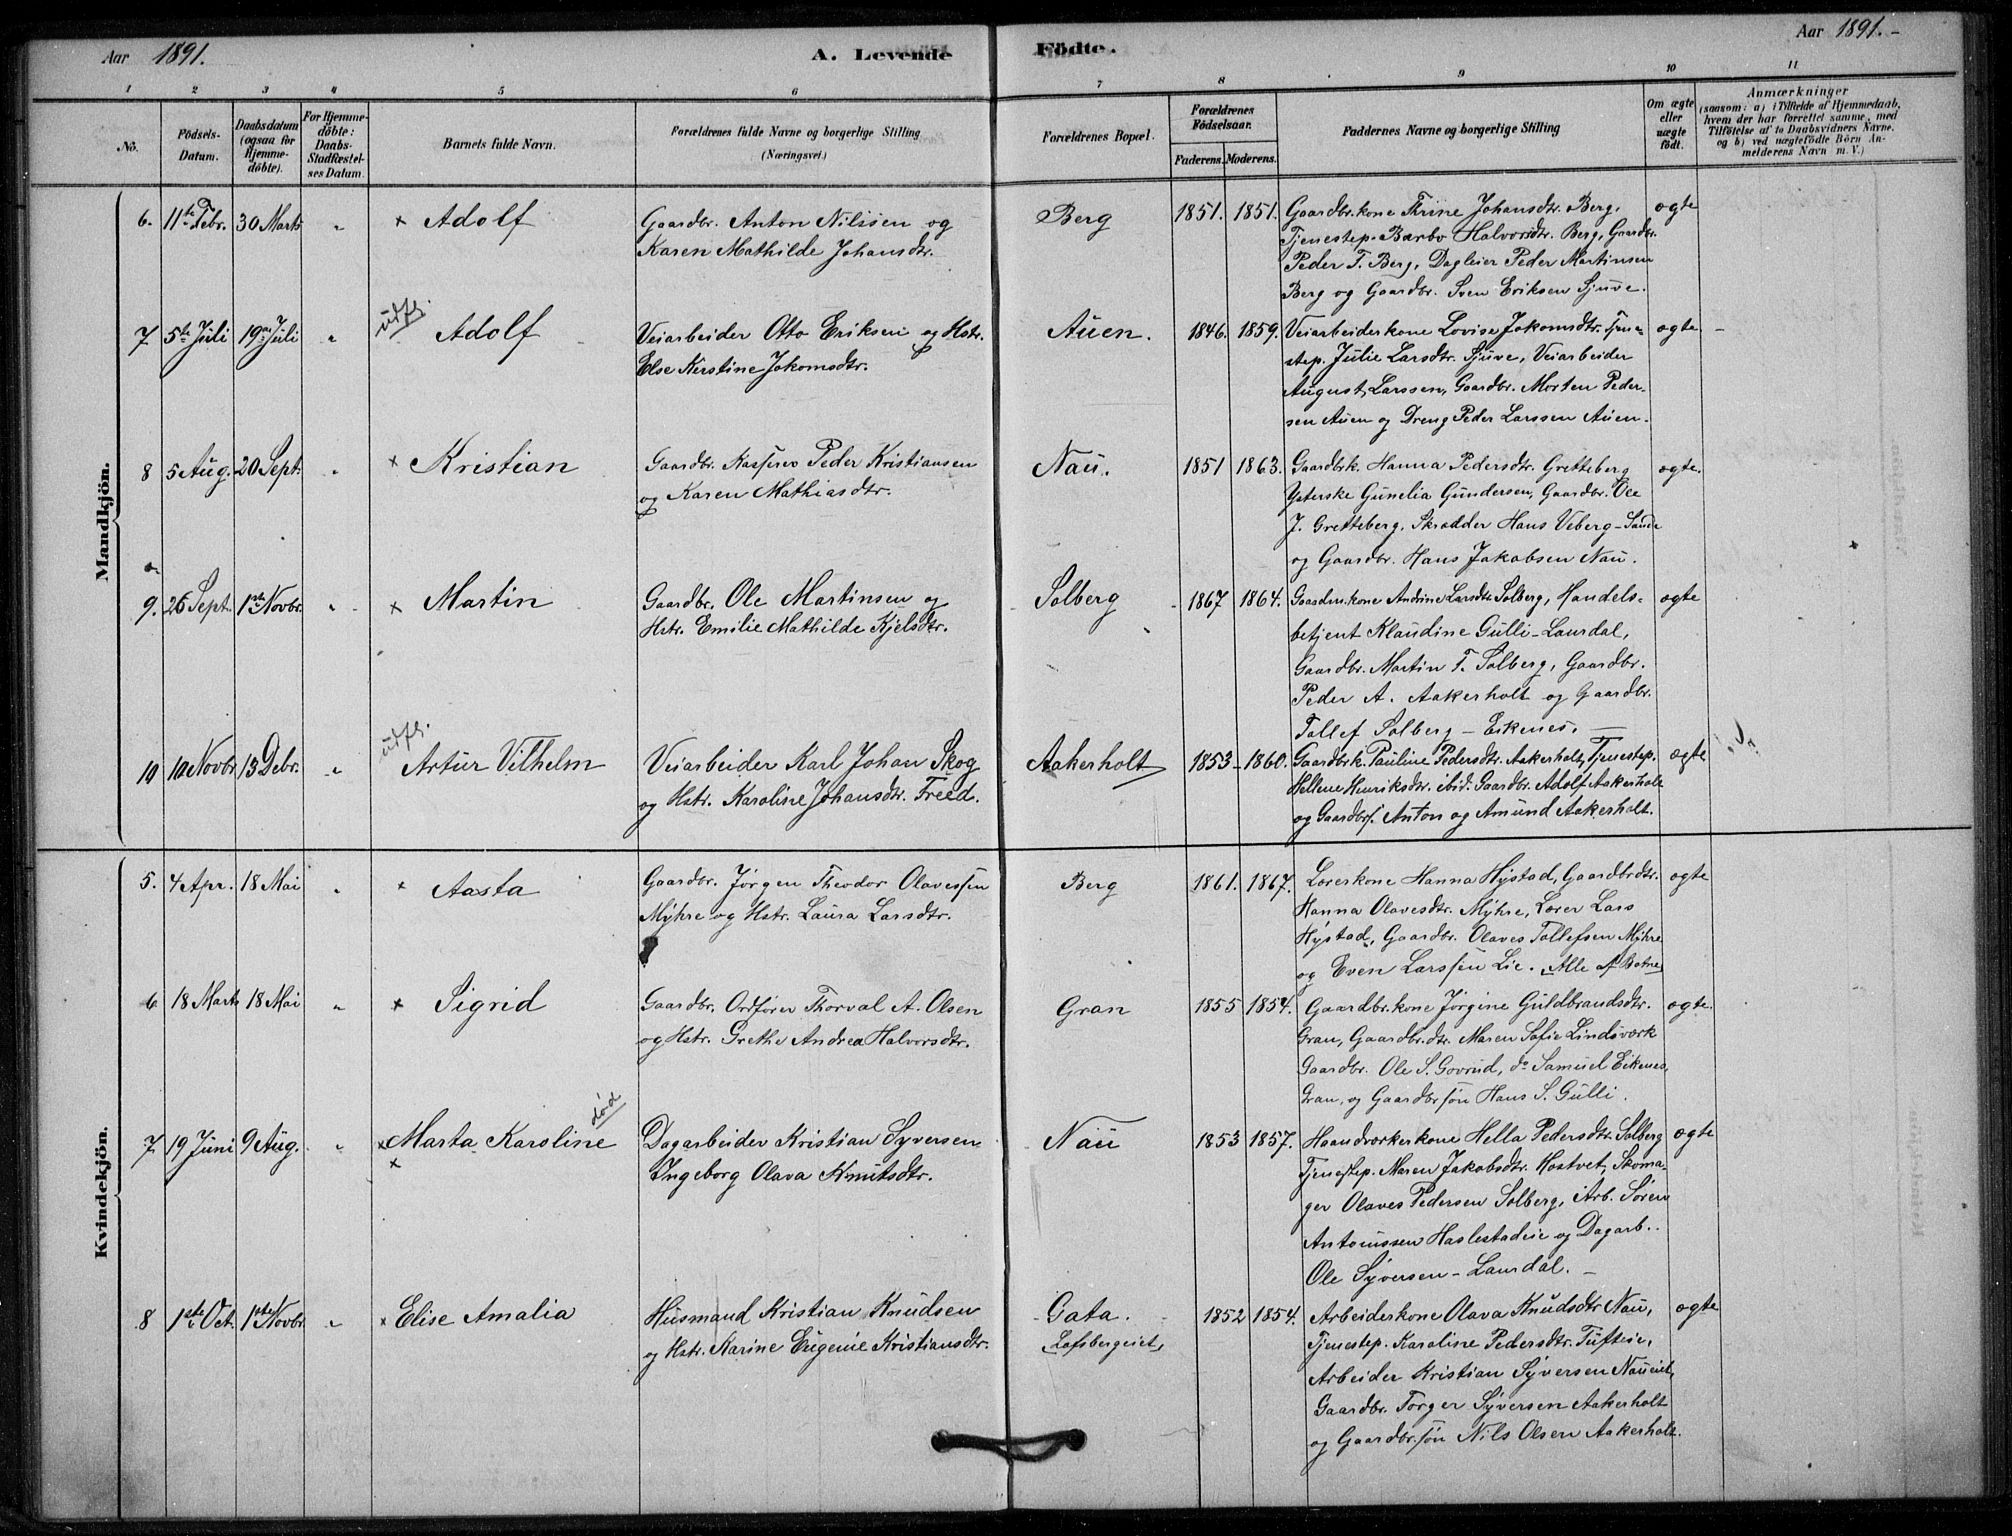 Aar 1891. A. Levende Födte. Aar 1891.-
1 2 3 4 5 6 7 8 9 10 11
No.
Födsels-Datum.
Daabsdatum (ogsaa for Hjemme-döbte).
For Hjemme-döbte: Daabs-Stadfæstel-ses Datum.
Barnets fulde Navn.
Forældrenes fulde Navne og borgerlige Stilling (Næringsvei.)
Forældrenes Bopæl.
Forældrenes Födselsaar.
Faderens. Moderens.
Faddernes Navne og borgerlige Stilling
Om ægte eller uægte födt.
Anmærkninger
(saasom: a) i Tilfælde af Hjemmedaab,
hvem der har forrettet samme, med
Tilföielse af to Daabsvidners Navne,
og b) ved uægtefödte Börn An-
melderens Navn m. V.)
Mandkjön.
6. 11te Febr. 30 Marts " × Adolf
Gaardbr. Anton Nilssen og
Karen Mathilde Johansdtr.
Berg 1851. 1851.
Gaardbr.kone Thrine Johansdtr. Berg,
Tjenestep. Barbo Halvorsdtr. Berg, Gaardbr.
Peder T. Berg, Dagleier Peder Martinsen
Berg og Gaardbr. Sven Eriksen Sjuve.
ægte
7 5te Juli 19de Juli " udfl. Adolf
Veiarbeider Otto Eriksen og Hstr.
Else Kirstine Jokomsdtr.
Auen. 1846. 1859.
Veiarbeiderkone Lovise Jokomsdtr. Tjene-
step. Julie Larsdtr. Sjuve, Veiarbeider
August Larssen, Gaardbr. Morten Peder-
sen Auen og Dreng Peder Larssen Auen.
ægte -
8 5 Aug. 20 Sept. " × Kristian
Gaardbr. Kasper Peder Kristiansen
og Karen Mathiasdtr.
Nau. 1851 1863.
Gaardbrk. Hanna Pedersdtr. Gretteberg
Ysterske Gunelia Gundersen, Gaardbr. Ole
J. Gretteberg, Skrædder Hans Veberg - Sande
og Gaardbr. Hans Jakobsen Nau.
ægte.
9. 26 Sept. 1ste Novbr. " × Martin
Gaardbr. Ole Martinsen og
Hstr. Emilie Mathilde Kjelsdtr.
Solberg 1867 1864.
Gaardm.kone Andrine Larsdtr Solberg, Handels-
betjent Klaudine Gulli - Laurdal,
Gaardbr. Martin T. Solberg, Gaardbr.
Peder A. Aakerholt og Gaardbr.
Tollef Solberg - Eikenes. -
ægte
10 10 Novbr 13 Debr. " udfl. Artur Vilhelm
Veiarbeider Karl Johan Skog
og Hstr. Karoline Johansdtr. Freed.
Aakerholt 1853 - 1860.
Gaardbrk. Pauline Pedersdtr. Aakerholt, Tjenestep.
Hellene Henriksdtr. ibid. Gaardbr. Adolf Aakerholt
og Gaardbrs. Anton og Amund Aakerholt.
ægte
Kvindekjön.
5. 4 Apr. 18 Mai " × Aasta
Gaardbr. Jørgen Theodor Olavessen
Myhre og Hstr. Laura Larsdtr.
Berg 1861. 1867.
Lærerkone Hanna Hystad, Gaardbrdtr.
Hanna Olavesdtr. Myhre, Lærer Lars
Hystad, Gaardbr. Olaves Tollefsen Myhre
og Even Larssen Lie. Alle af Botne
ægte
6 18 Marts 18 Mai " × Sigrid
Gaardbr. Ordfører Thorval A. Olsen
og Hstr. Grethe Andrea Halvorsdtr.
Gran 1855 1854.
Gaardbr.kone Jørgine Guldbrandsdtr.
Gran, Gaardbr.dtr. Maren Sofie Lindsværk
Gaardbr. Ole S. Govrud, do Samuel Eikenes,
Gran, og Gaardbrsøn Hans S. Gulli.
ægte.
7 19 Juni 9 Aug. " × Marta Karoline død
×
Dagarbeider Kristian Syversen
Ingeborg Olava Knutsdtr.
Nau 1853 1857.
Haandværkerkone Hella Pedersdtr. Solberg
Tjenestep. Maren Jakobsdtr. Hostvet, Skoma-
ger Olaves Pedersen Solberg, Arb. Søren
Antonissen Haslestadeie og Dagarb..
Ole Syversen - Laurdal. -
ægte
8 1ste Oct. 1ste Novbr. " × Elise Amalia
Husmand Kristian Knudsen
og Hstr. Karine Eugenie Kristiansdtr.
Gata. 1852 1854.
Lofsbergeiet,
Arbeiderkone Olava Knudsdtr Nau,
Tjenestep. Karoline Pedersdtr. Tufteie,
Arbeider Kristian Syversen Naueiet,
Gaardbr. Torger Syversen Aakerholt
og Gaardbr.søn Nils Olsen Aakerholt.
ægte